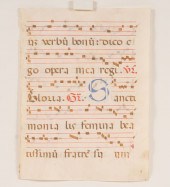 us verbū bonū: dico e
go opera mea regi. V.
Gloria. Oṝ. S ancti
monia lis femina bea
tissimū fratrē su um